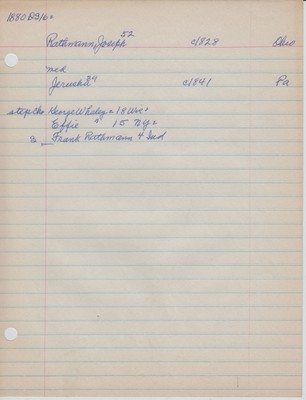 Rathmann, Joseph 52 c1828 Ohio
med
Jerusha 39 c1841 Pa
step ch George Whaley 18 Wis
Effie " 15 Ny
s Frank Rathmann 4 Ind